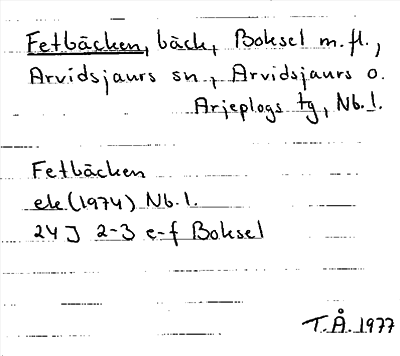 Fetbäcken, bäck, Boksel m.fl.,
Arvidsjaurs sn, Arvidsjaurs o.
Arjeplogs tg, Nb.l.
Fetbäcken
ek (1974) Nb.l.
24J 2-3 e-f Boksel
T.Å. 1977